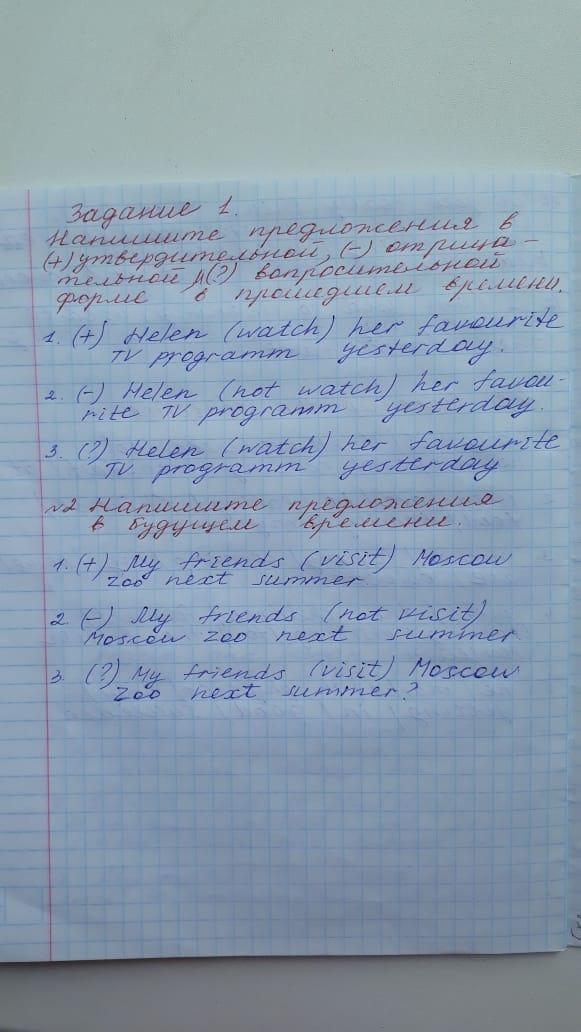 Задание 1.
Напишите предложения в
(+) утвердительной, (-) отрица-
тельной и (?) вопросительной
форме в прошедшем времени.
1. (+) Helen (watch) her favourite
TV programm yesterday.
2. (-) Helen (not watch) her favou-
rite TV programm yesterday.
3. (?) Helen (watch) her favourite
TV programm yesterday
№2 Напишите предложения
в будущем времени.
1. (+) My friends (visit) Moscow
zoo next summer.
2 (-) My friends (not visit)
Moscow zoo next summer
3. (?) My friends (visit) Moscow
zoo next summer?